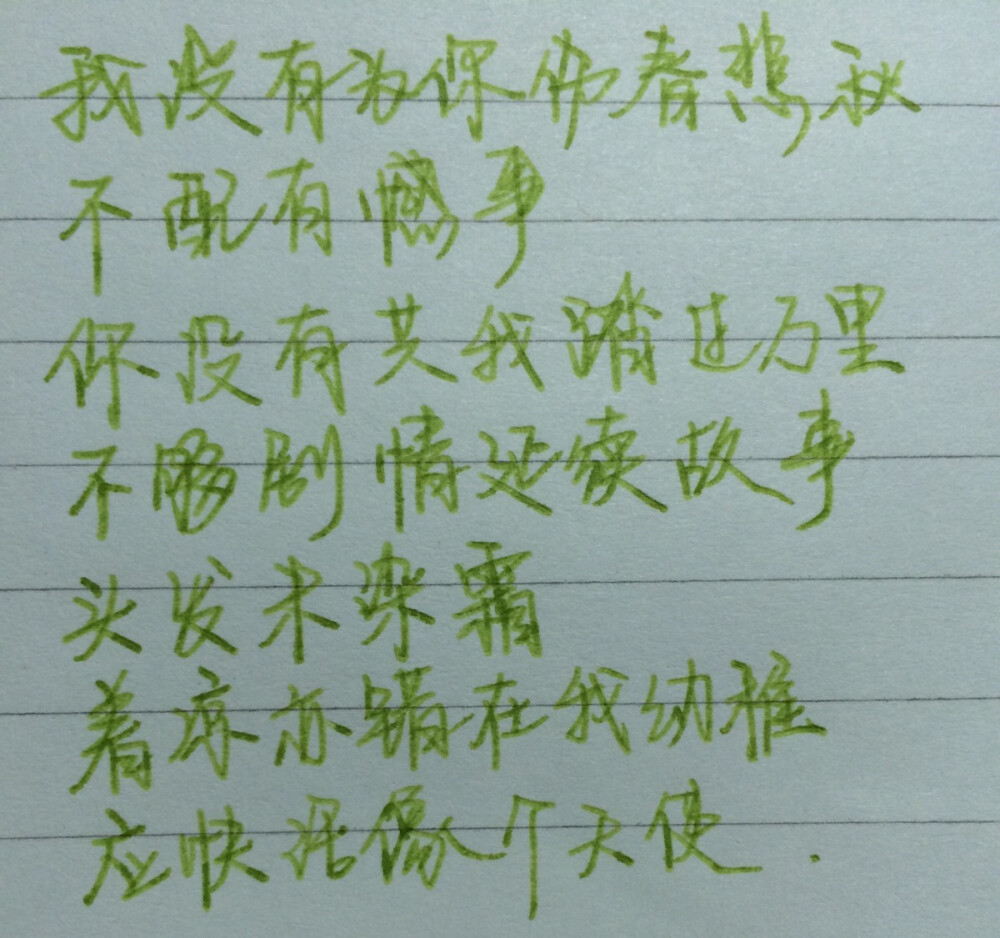 我没有为你伤春悲秋
不配有憾事
你没有共我踏过万里
不够剧情延续故事
头发未染霜
着凉亦错在我幼稚
应快活像个天使.